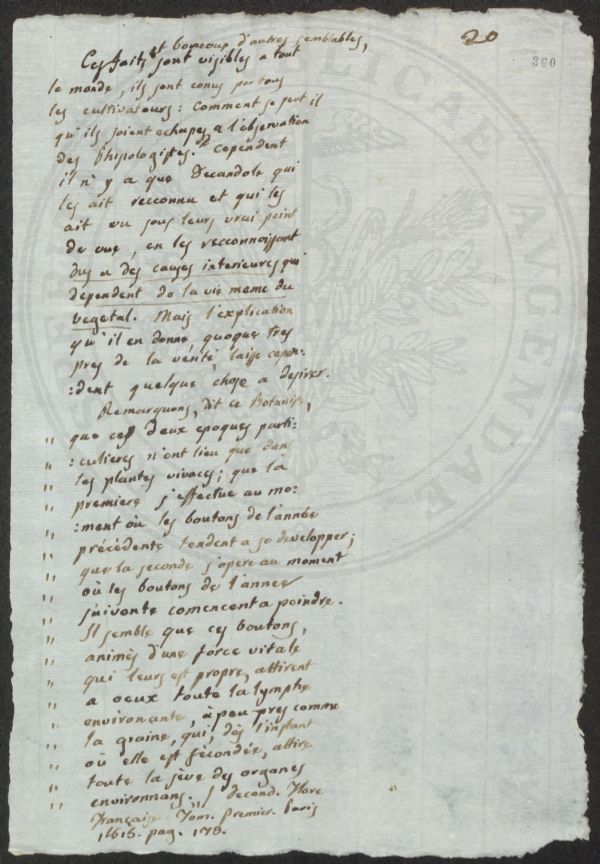 20
360
et boucoup d'autres semblables,
Ces faits sont visibles a tout
le monde, ils sont conus par tous
les cultivateurs: Comment se peut il
qu'ils soient echapes a l'observation
des Phisiologistes? Cependent
il n'y a que Decandole qui
les ait recconnu et qui les
ait vu sous leurs vrai point
de vue, en les recconnoissant
dus a des causes interieures qui
dependent de la vie meme du
vegetal. Mais l'explication
qu'il en donne, quoque tres
pres de la verité, laisse cepen:
:dent quelque chose a desirer.
Remarquons, dit ce Botaniste,
" que ces deux epoques parti:
" :culieres n'ont lieu que dans
" les plantes vivaces; que la
" premiere s'effectue au mo:
" :ment où les boutons de l'année
" précédente tendent a se developper;
" que la seconde s'opere au moment
" où les boutons de l'année
" suivante comencent a poindre.
" Il semble que ces boutons,
" animés d'une force vitale
" qui leurs est propre, attirent
" a ceux toute la lymphe
" environante, à peu pres comme
" la graine, qui, dès l'instant
" où elle est fécondée, attire
" toute la séve des organes
" environnans." / decand. Flore
Française. Tom. premier. Paris
1815. pag. 178.